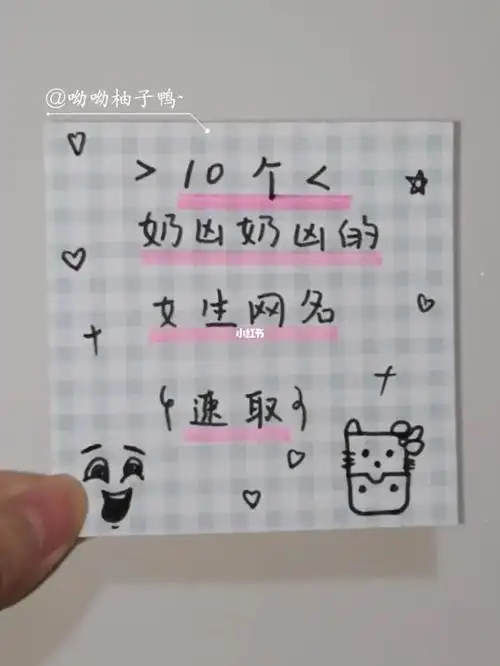 @呦呦柚子鸭~
>10个<
奶凶奶凶的
女生网名
小红书
{速取}